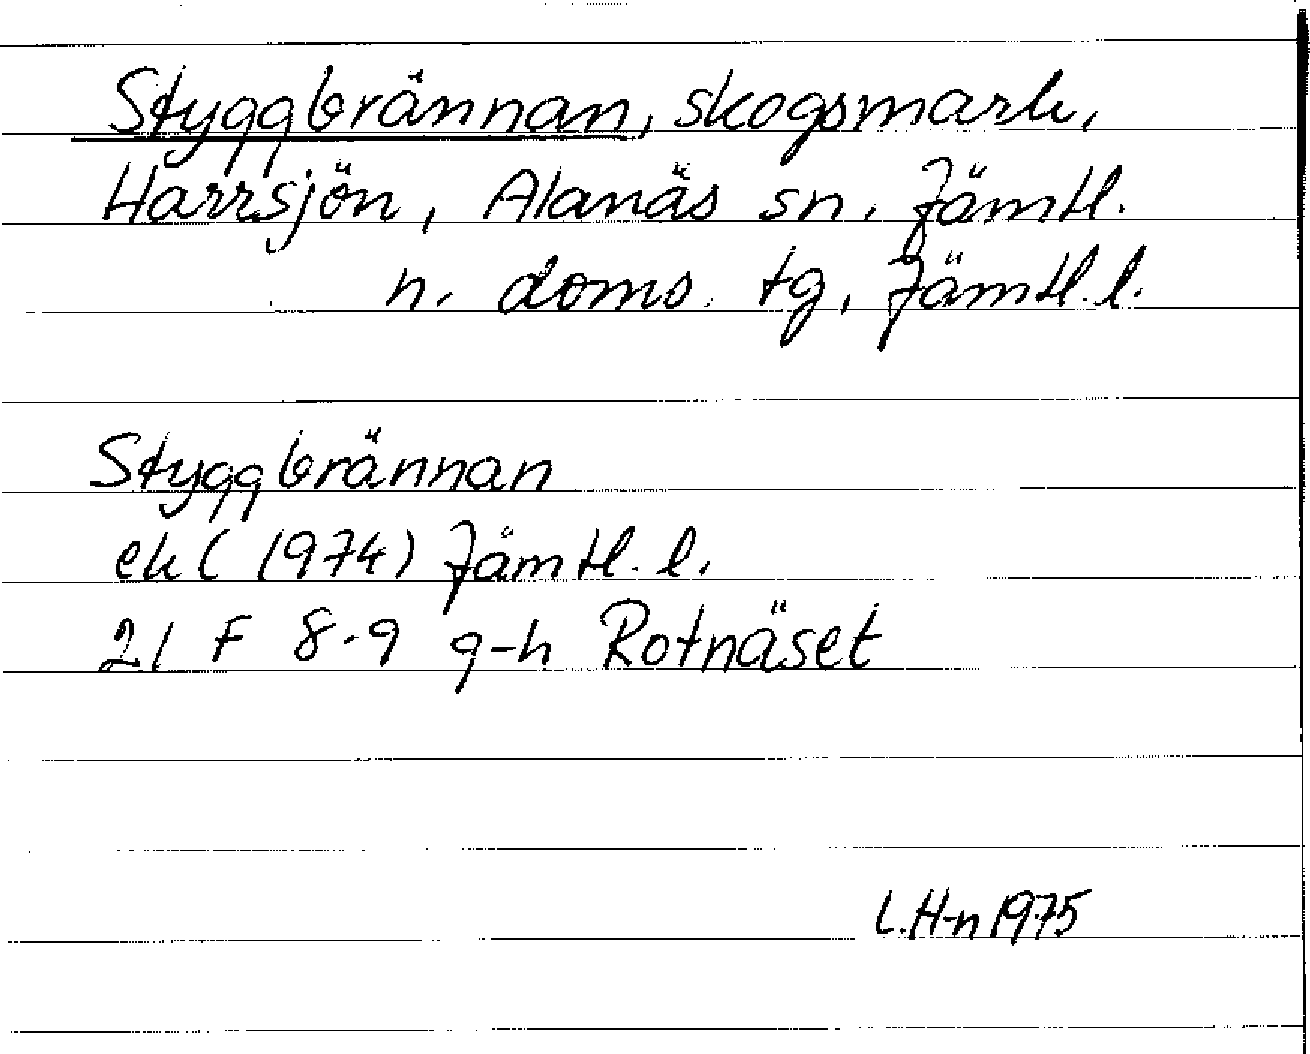 Styggbrännan, skogsmark,
Harrsjön, Alanäs sn, Jämtl.
n. doms. tg, Jämtl. l.
Styggbrännan
ek (1974) Jämtl. l.
21 F 8-9 g-h Rotnäset
L.H-n 1975